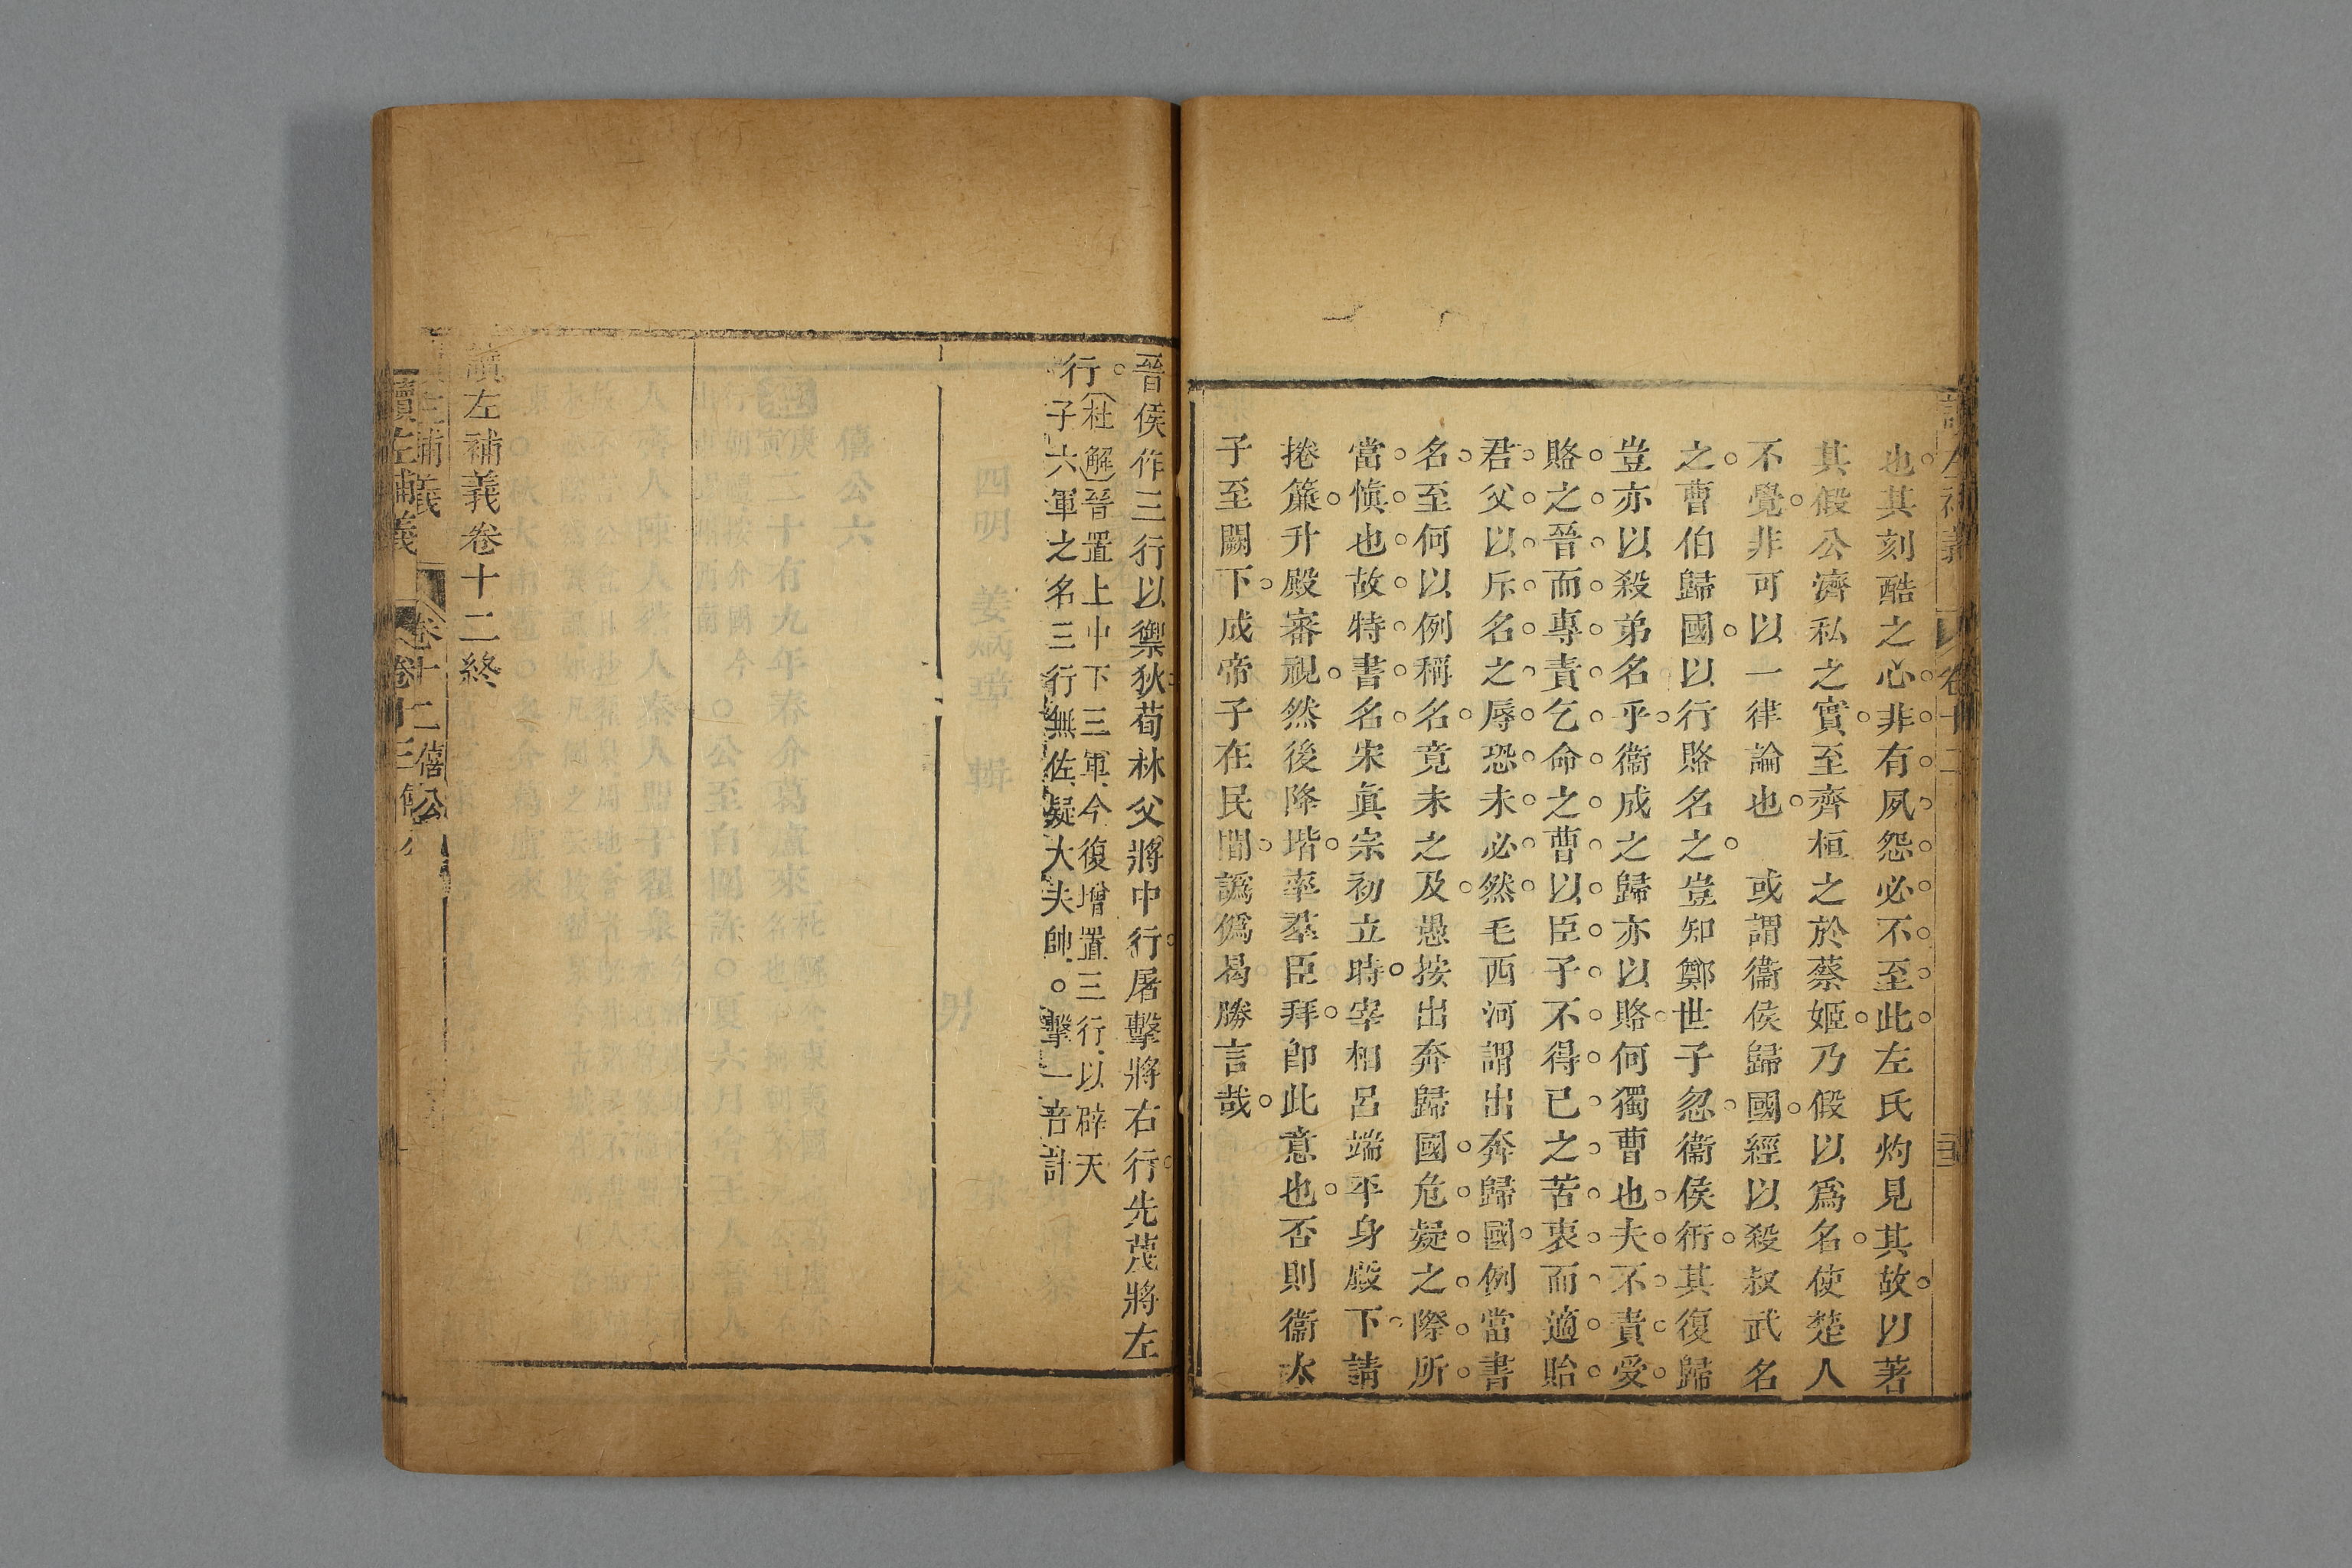 也其刻酷之心非有夙怨必不至此左氏灼見其故以著
其假公濟私之實至齊桓之於蔡姬乃假以爲名使楚人
不覺非可以一律論也　或謂衞侯歸國經以殺叔武名
之曹伯歸國以行賂名之豈知鄭世子忽衞侯衎其復歸
豈亦以殺弟名乎衞成之歸亦以賂何獨曹也夫不責受
賂之晉而專責乞命之曹以臣子不得已之苦衷而適貽
君父以斥名之辱恐未必然毛西河謂出奔歸國例當書
名至何以例稱名竟未之及愚按出奔歸國危疑之際所
當愼也故特書名宋眞宗初立時宰相呂端平身殿下請
捲簾升殿審視然後降堦率羣臣拜卽此意也否則衞太
子至闕下成帝子在民間譌僞曷勝言哉
晉侯作三行以禦狄荀林父將中行屠擊將右行先蔑將左
行杜解晉置上中下三軍今復增置三行以辟天
子六軍之名三行無佐疑大夫帥○擊一音計
讀左補義卷十二終
補義　卷十二僖公
讀左補義　卷十三